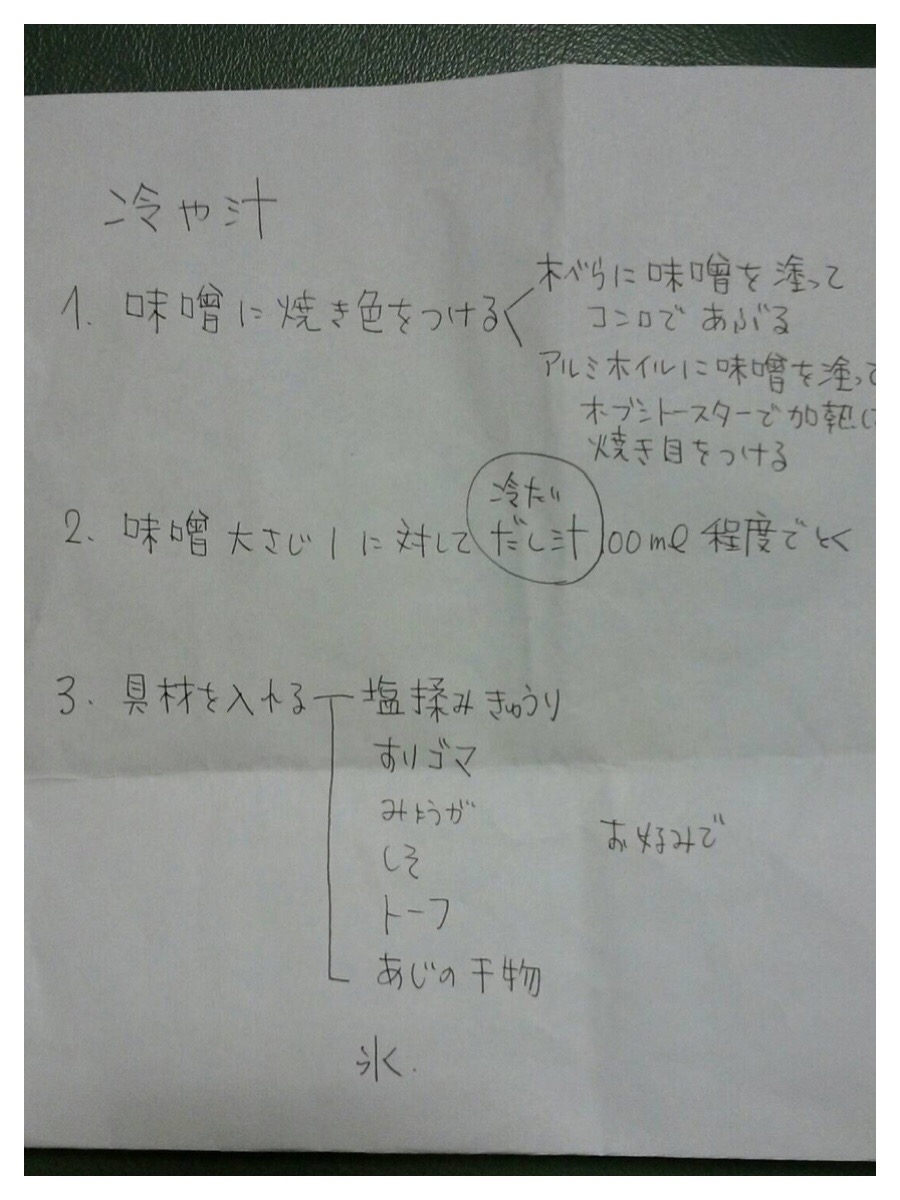 冷や汁
1. 味噌に焼き色をつける
木べらに味噌を塗って
コンロであぶる
アルミホイルに味噌を塗って
オーブントースターで加熱し
焼き目をつける
2. 味噌大さじ1に対して 冷たい だし汁 100ml 程度でとく
3. 具材を入れる
塩揉みきゅうり
すりゴマ
みょうが
しそ
トーフ
あじの干物
お好みで
氷.